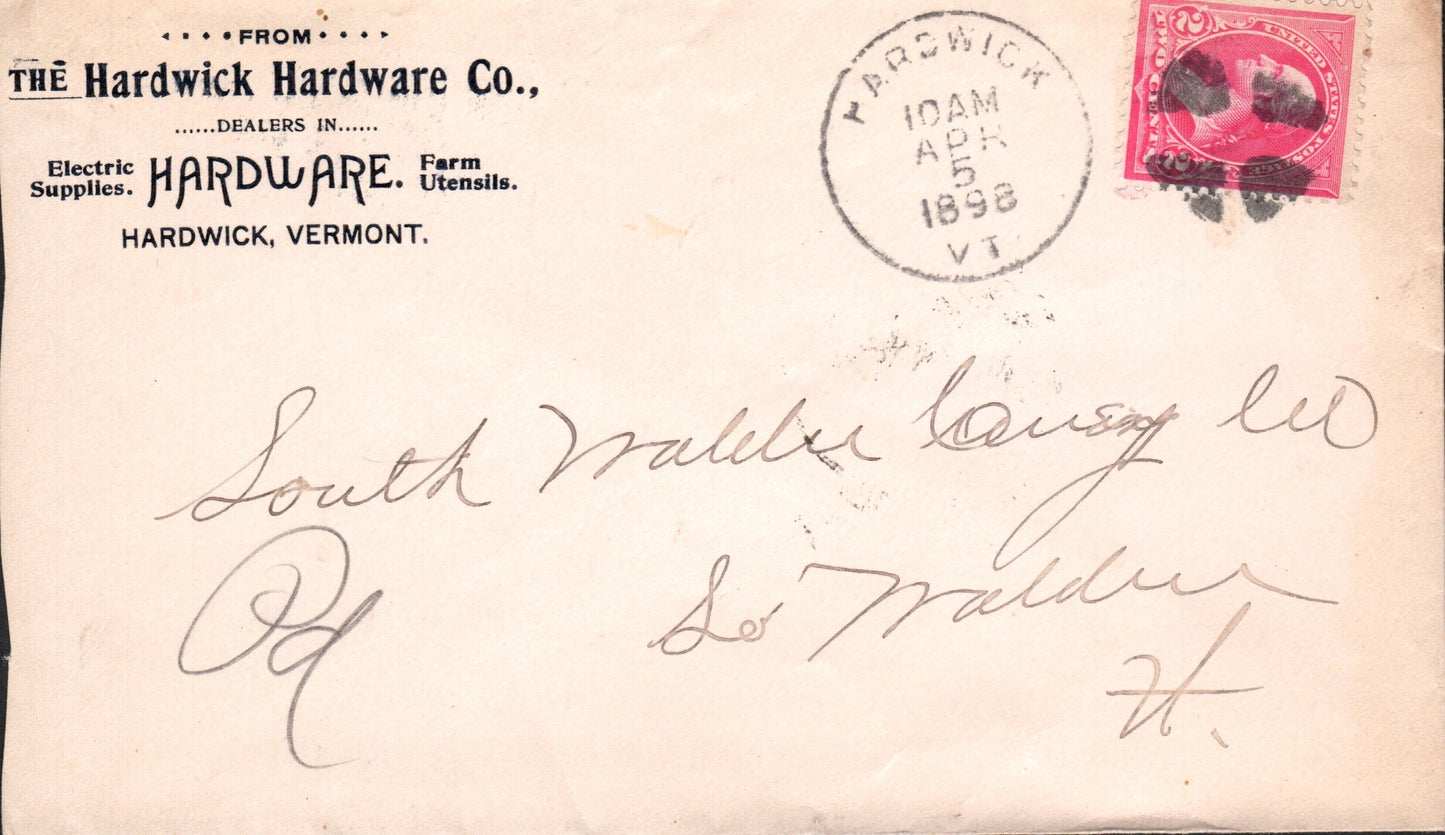 FROM
THE Hardwick Hardware Co.,
......DEALERS IN......
Electric Supplies. HARDWARE. Farm Utensils.
HARDWICK, VERMONT.
HARDWICK
10AM
APR
5
1898
VT
UNITED STATES POSTAGE
TWO CENTS
2 2
South Walden
So Walden
Vt.
Pd